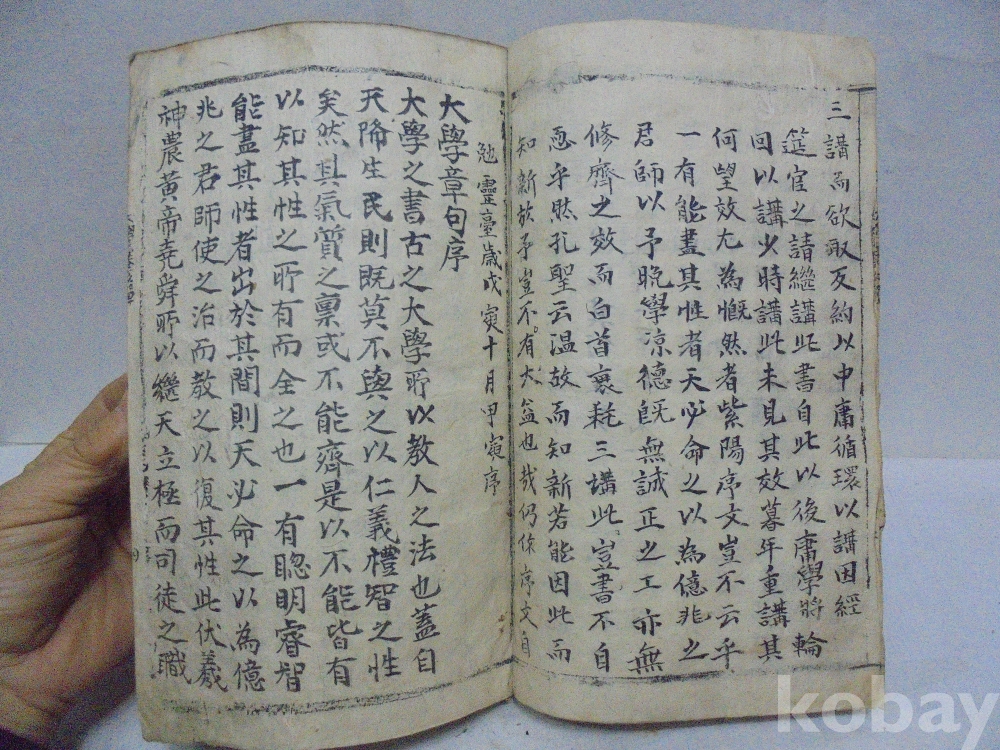 三講而欲取反約以中庸循環以講因經
筵官之請繼講此書自此以後庸學將輪
回以講少時講此未見其效暮年重講其
何望效尤為慨然者紫陽序文豈不云乎
一有能盡其性者天必命之以為億兆之
君師以予晚學涼德旣無誠正之工亦無
修齊之效而白首衰耗三講此豈書不自
恧乎然孔聖云溫故而知新若能因此而
知新於予豈不有大益也哉仍作序文自
勉靈臺歲戊寅十月甲寅序
大學章句序
大學之書古之大學所以教人之法也蓋自
天降生民則既莫不與之以仁義禮智之性
矣然其氣質之稟或不能齊是以不能皆有
以知其性之所有而全之也一有聰明睿智
能盡其性者出於其間則天必命之以為億
兆之君師使之治而教之以復其性此伏羲
神農黃帝堯舜所以繼天立極而司徒之職
kobay